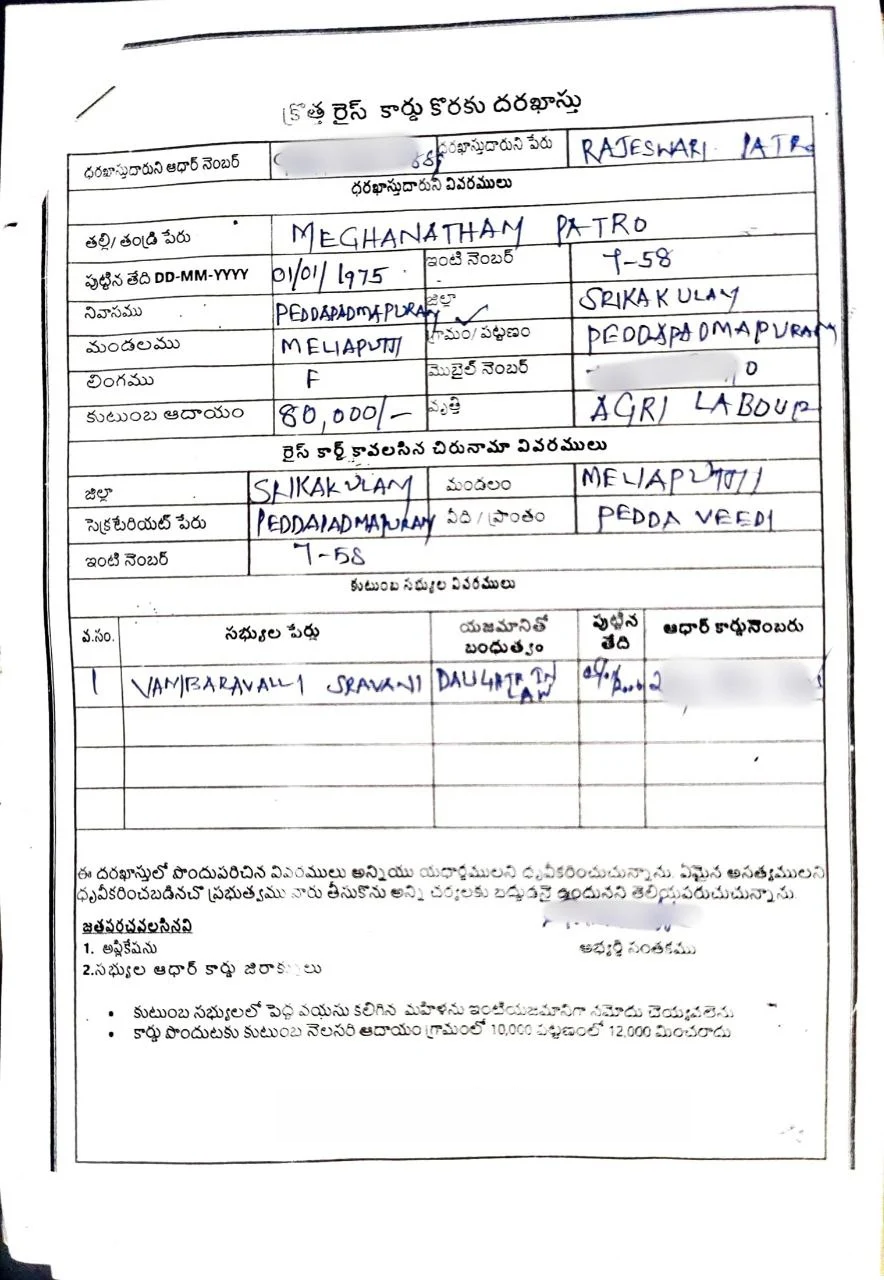 క్రొత్త రైస్ కార్డు కొరకు దరఖాస్తు
ధరఖాస్తుదారుని ఆధార్ నెంబర్ ధరఖాస్తుదారుని పేరు RAJESWARI PATRO
ధరఖాస్తుదారుని వివరములు
తల్లి/ తండ్రి పేరు MEGHANATHAM PATRO
పుట్టిన తేది DD-MM-YYYY 01/01/1975 ఇంటి నెంబర్ 7-58
నివాసము PEDDAPADMAPURAM జిల్లా SRIKAKULAM
మండలము MELIAPUTTI గ్రామం/ పట్టణం PEDDAPADMAPURAM
లింగము F మొబైల్ నెంబర్ 0
కుటుంబ ఆదాయం 80,000/- వృత్తి AGRI LABOUR
రైస్ కార్డ్ కావలసిన చిరునామా వివరములు
జిల్లా SRIKAKULAM మండలం MELIAPUTTI
సెక్రటేరియట్ పేరు PEDDAPADMAPURAM వీది / ప్రాంతం PEDDA VEEDI
ఇంటి నెంబర్ 7-58
కుటుంబ సభ్యుల వివరములు
వ.సం. సభ్యుల పేర్లు యజమానితో బంధుత్వం పుట్టిన తేది ఆధార్ కార్డునెంబరు
1 VANJBARAVALLI SRAVANI IN LAW 2
ఈ దరఖాస్తులో పొందుపరిచిన వివరములు అన్నియు యధార్థములని ధృవీకరించుచున్నాను. ఏమైన అసత్యములని
ధృవీకరించబడినచో ప్రభుత్వము వారు తీసుకొను అన్ని చర్యలకు బద్దుడనై ఉందునని తెలియపరుచుచున్నాను.
జతపరచవలసినవి
1. అప్లికేషను అభ్యర్థి సంతకము
2.సభ్యుల ఆధార్ కార్డు
• కుటుంబ సభ్యులలో పెద్ద వయసు కలిగిన మహిళను ఇంటియజమానిగా నమోదు చెయ్యవలెను
• కార్డు పొందుటకు కుటుంబ నెలసరి ఆదాయం గ్రామంలో 10,000 పట్టణంలో 12,000 మించరాదు